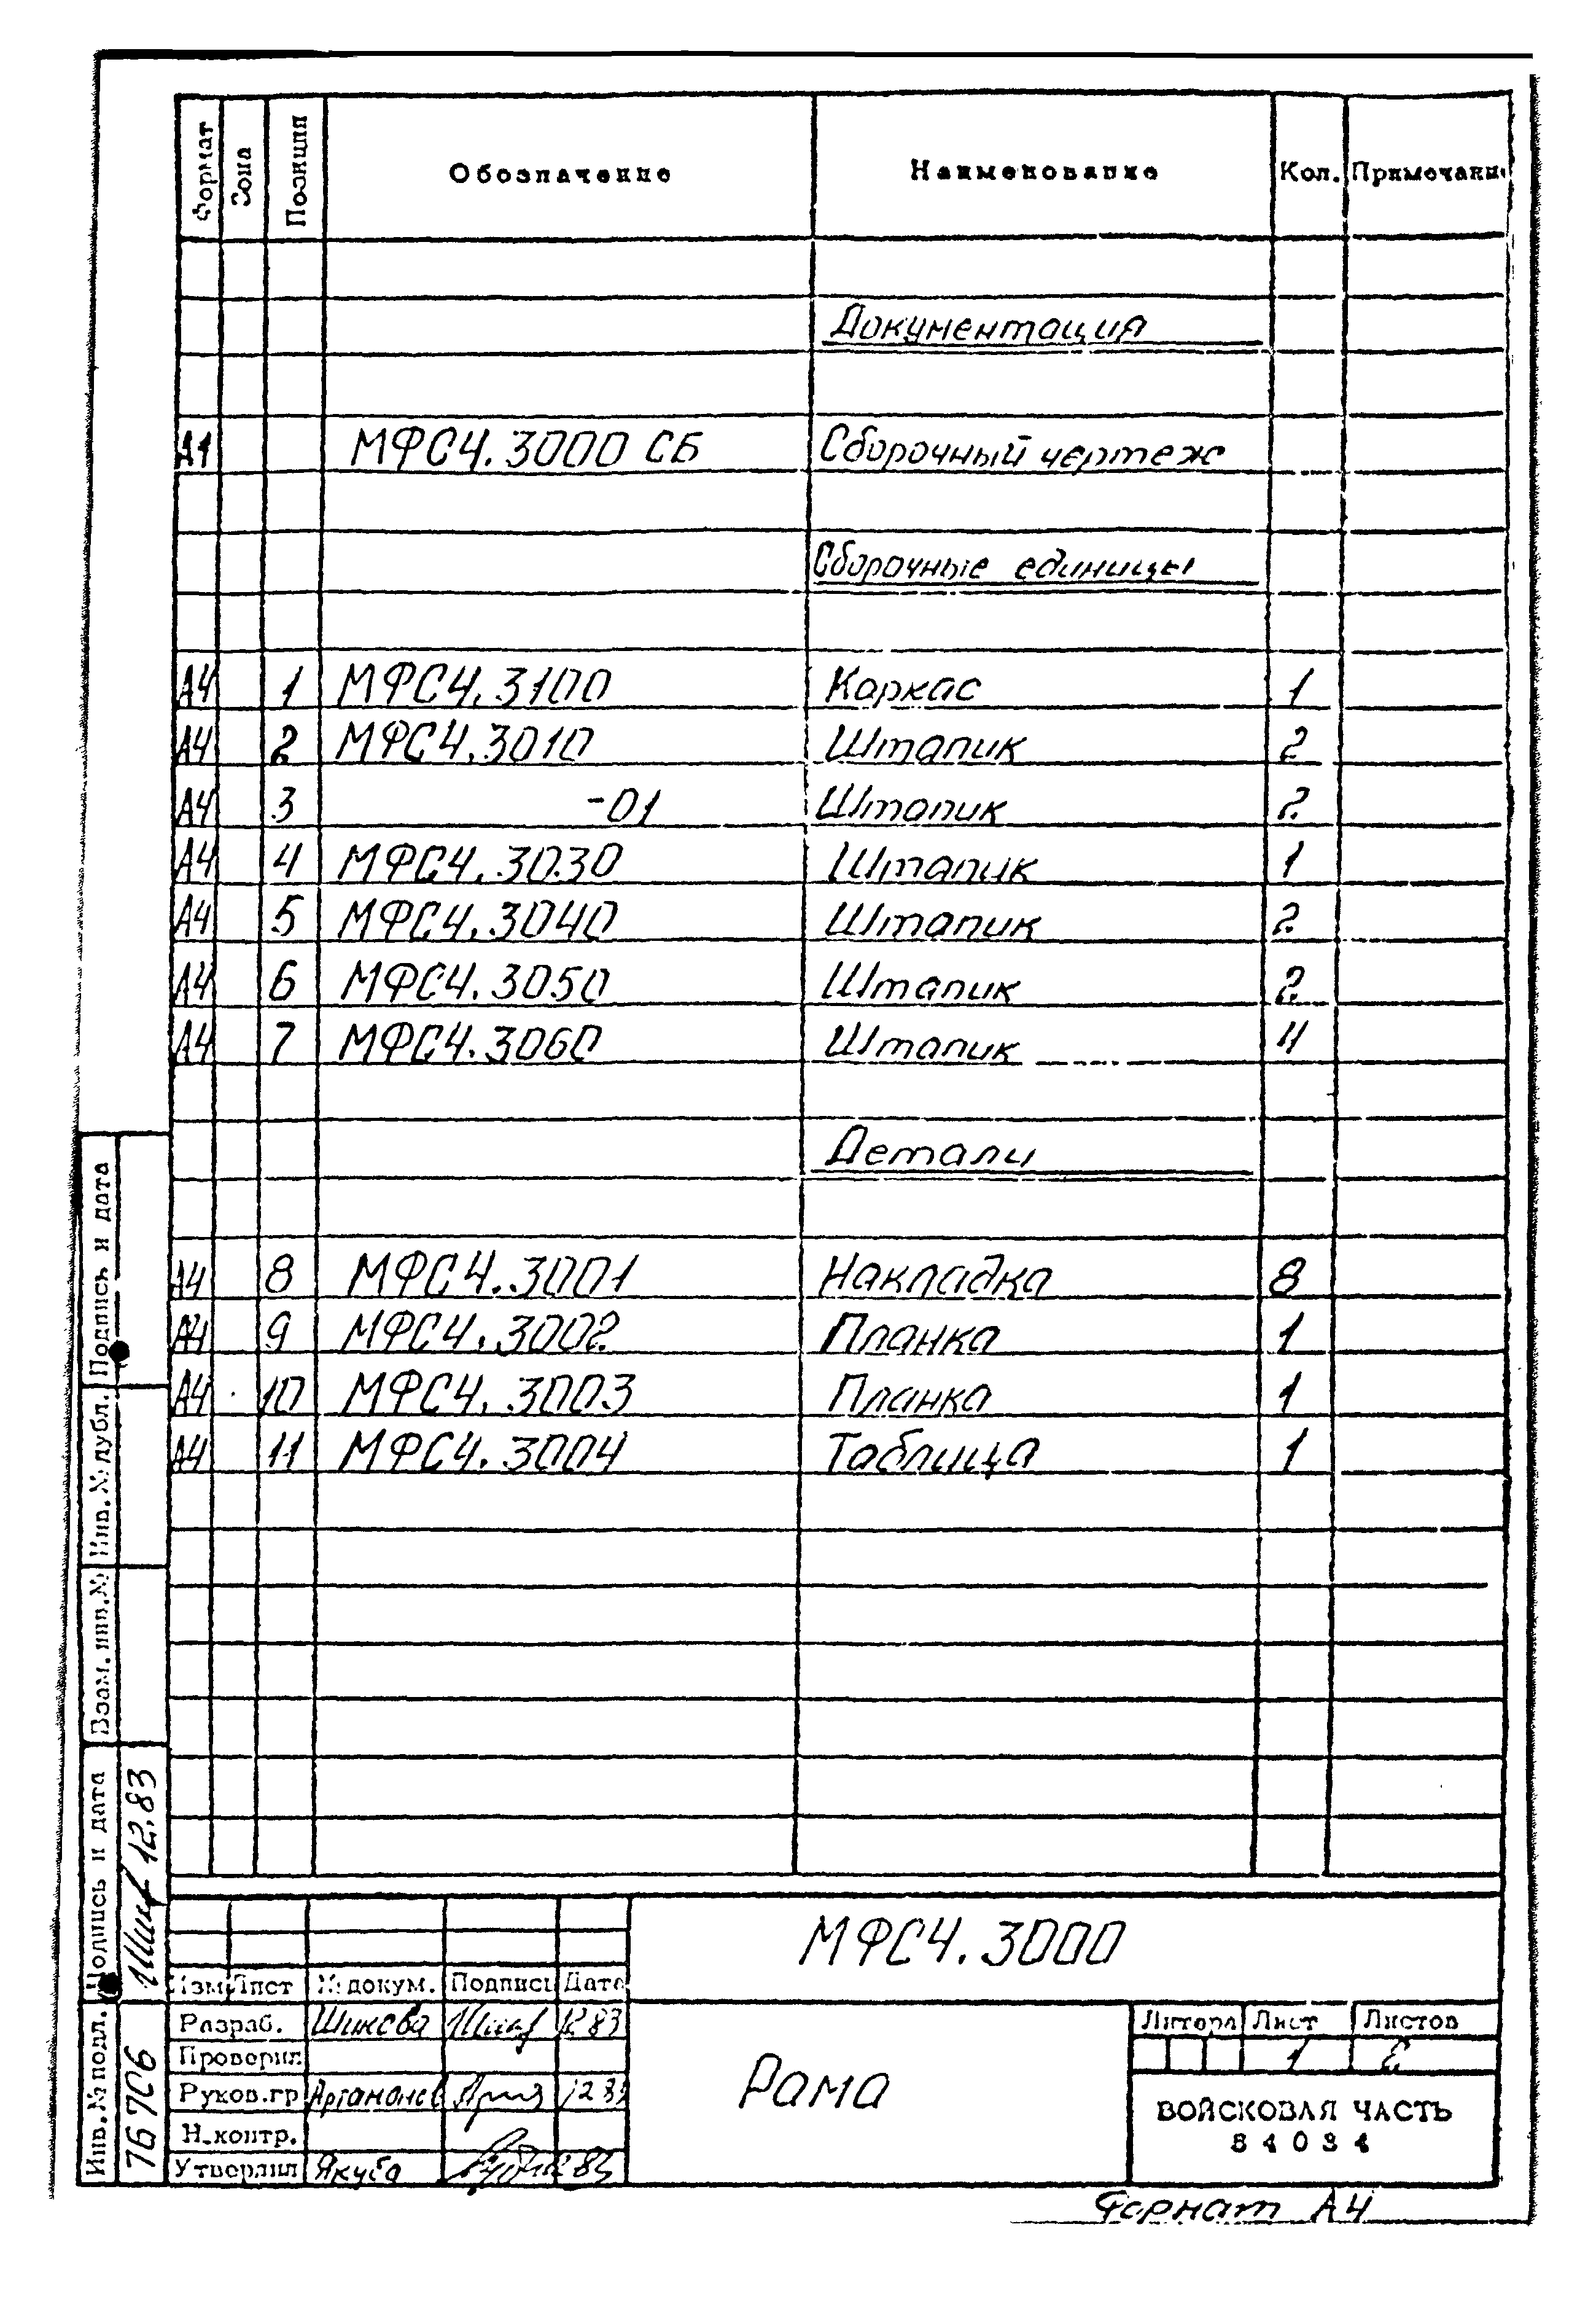 Формат Зона Позиция Обозначение Наименование Кол. Примечани
Документация
А1 МФС4.3000 СБ Сборочный чертеж
Сборочные единицы
А4 1 МФС4.3100 Каркас 1
А4 2 МФС4.3010 Штапик 2
А4 3 -01 Штапик 2
А4 4 МФС4.3030 Штапик 1
А4 5 МФС4.3040 Штапик 2
А4 6 МФС4.3050 Штапик 2
А4 7 МФС4.3060 Штапик 4
Детали
А4 8 МФС4.3001 Накладка 8
А4 9 МФС4.3002 Планка 1
А4 10 МФС4.3003 Планка 1
А4 11 МФС4.3004 Таблица 1
Подпись и дата
Инв.№ дубл.
Взам.инв.№
Подпись и дата 12.83
Инв.№ подл. 76706
МФС4.3000
Изм Лист № докум. Подпись Дата
Разраб. 12 83
Проверил
Руков.гр
Н.контр.
Утвердил Якуба
Рама
Литера Лист Листов
1
ВОЙСКОВАЯ ЧАСТЬ
Формат А4